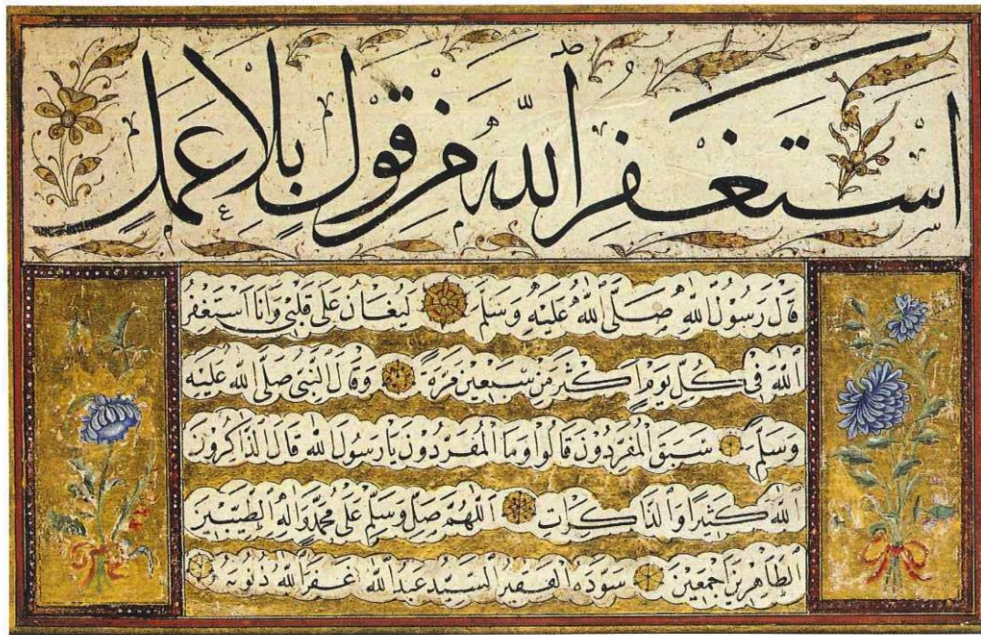 استغفر الله من قول بلا عمل
قال رسول الله صلى الله عليه وسلم ليغان على قلبي وانا استغفر
الله في كل يوم اكثر من سبعين مرة وقال النبي صلى الله عليه
وسلم سبق المفردون قالوا وما المفردون يا رسول الله قال الذاكرون
الله كثيرا والذاكرات اللهم صل وسلم على محمد واله الطيبين
الطاهرين اجمعين سوده الفقير السيد عبد الله غفر الله ذنوبه